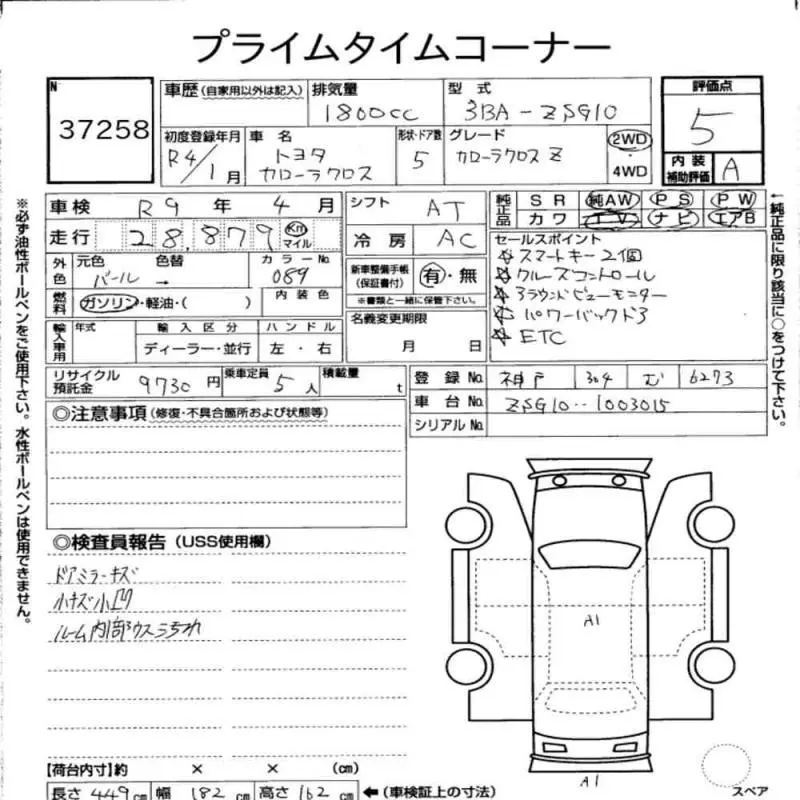 プライムタイムコーナー
N
37258
車歴(自家用以外は記入)
排気量
1800cc
型式
3BA-ZSG10
評価点
5
初度登録年月
R4/1月
車名
トヨタ
カローラクロス
形状・ドア数
5
グレード
カローラクロス Z
2WD
・
4WD
内装
補助評価
A
車検 R9年4月
走行 28,879 Km マイル
シフト AT
冷房 AC
純正品
SR 純AW PS PW
カワ TV ナビ エアB
外色
元色 色替 カラーNo
パール → 089
燃料
ガソリン・軽油・( )
内装色
新車整備手帳
(保証書付)
有・無
※書類と一緒に保管下さい。
セールスポイント
☆スマートキー2個
☆クルーズコントロール
☆アラウンドビューモニター
☆パワーバックドア
☆ETC
輸入車用
年式 輸入区分 ハンドル
ディーラー・並行 左・右
名義変更期限
月 日
リサイクル
預託金
9730円
乗車定員 5人
積載量 t
登録No. 神戸 304 む 6273
車台No. ZSG10--1003015
シリアルNo.
◎注意事項(修復・不具合箇所および状態等)
◎検査員報告(USS使用欄)
ドアミラーキズ
小キズ小凹
ルーム内部ウスヨゴレ
A1
A1
スペア
【荷台内寸】約 × × (cm)
長さ 449cm 幅 182cm 高さ 162cm ←(車検証上の寸法)
※必ず油性ボールペンをご使用下さい。水性ボールペンは使用できません。
←純正品に限り該当に○をつけて下さい。